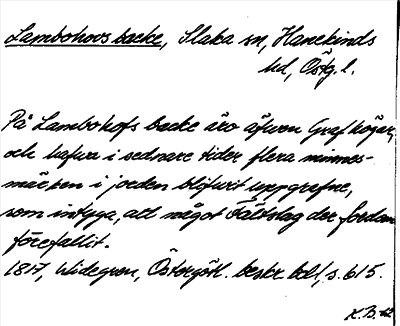 Lambohovs backe, Slaka sn, Hanekinds
hd, Östg. l.
På Lambohofs backe äro äfwen Grafhögar,
och hafwa i sednare tider flera minnes-
märken i jorden blifwit uppgrafne,
som intyga, att något Fältslag der fordom
förefallit.
1817, Widegren, Östergötl. beskr. bd 1, s. 615.
K. B. 42